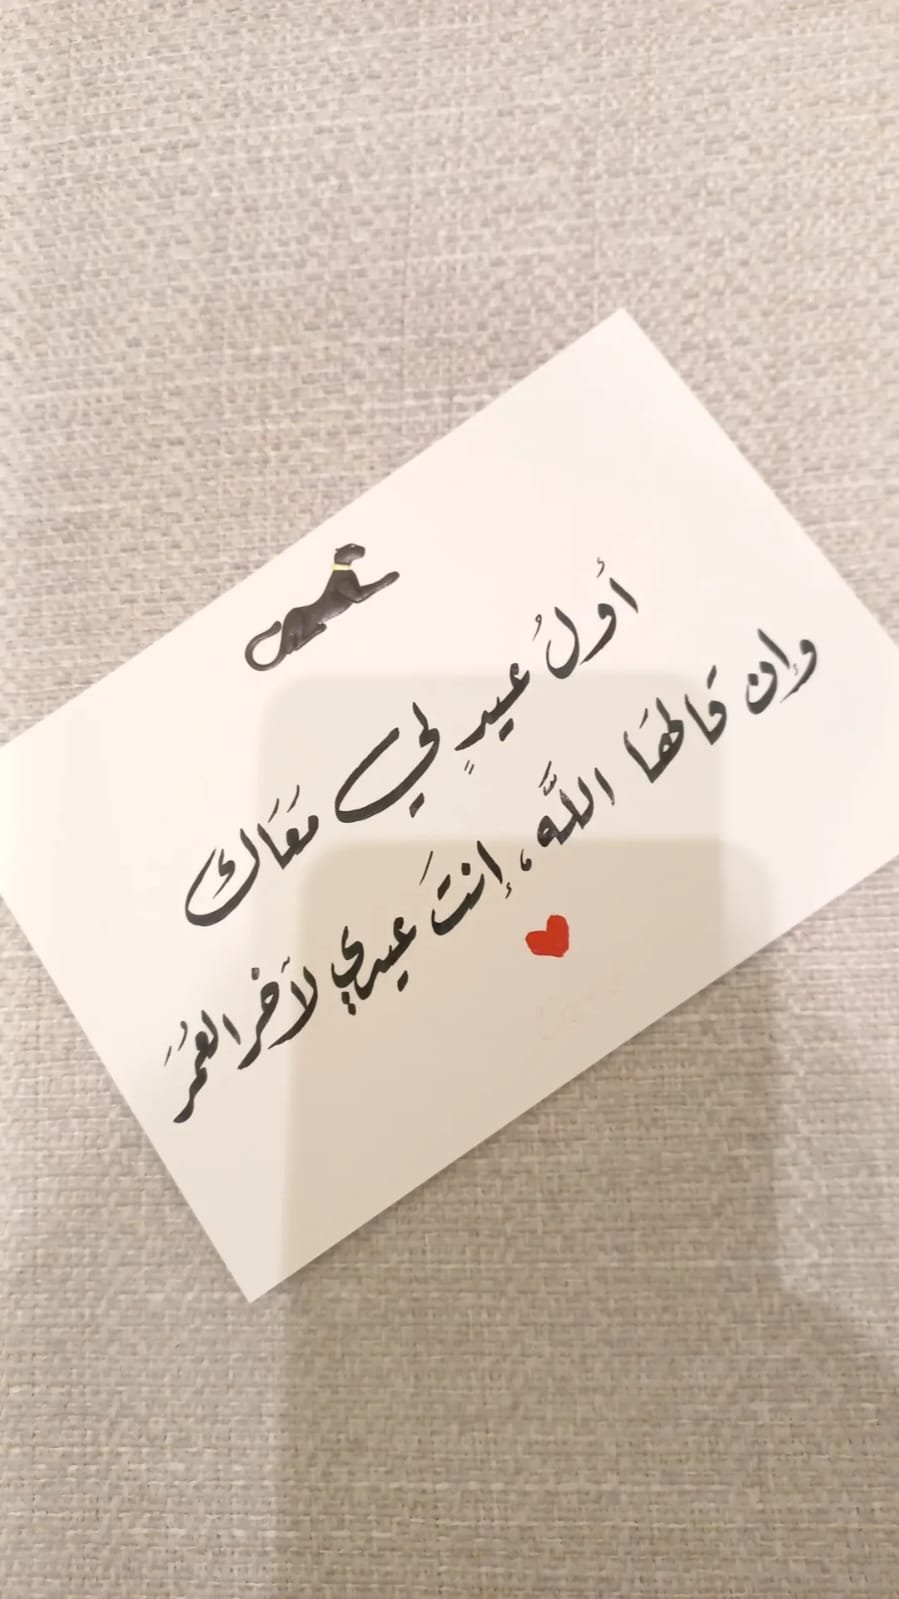 أولُ عيدٍ لي مَعَاك
وإن قالهَا اللَّه، إنتَ عيدي لآخر العُمَر